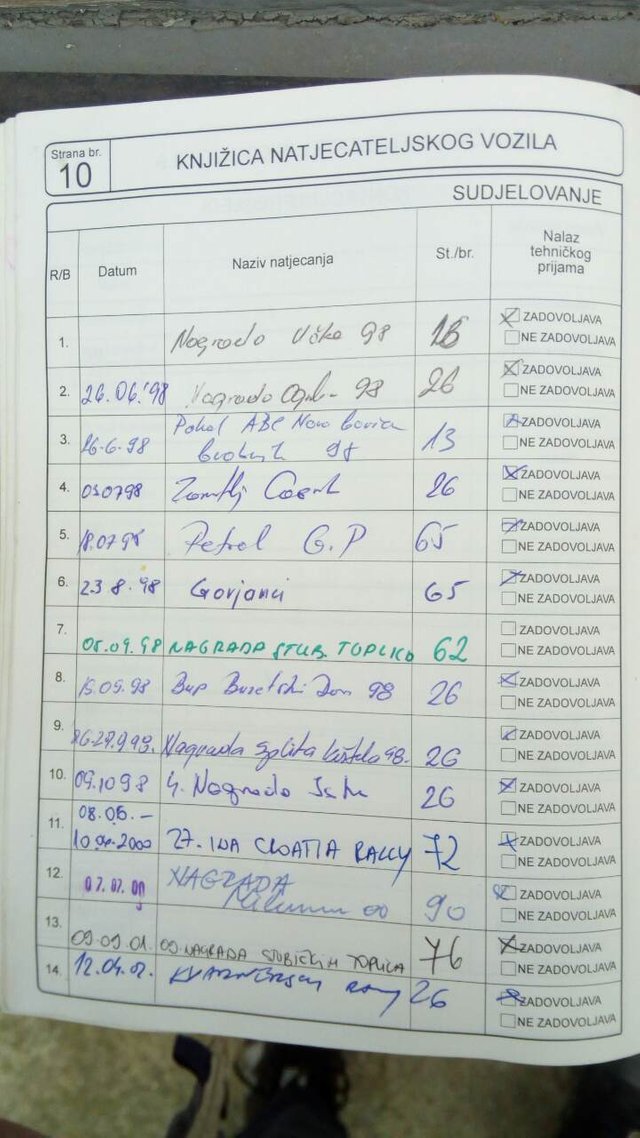 Strana br.
10
KNJIŽICA NATJECATELJSKOG VOZILA
SUDJELOVANJE
R/B Datum Naziv natjecanja St./br. Nalaz
tehničkog
prijama
1. Nagrada Učke 98 16 ZADOVOLJAVA
NE ZADOVOLJAVA
2. 26.06.'98 Nagrada 98 26 ZADOVOLJAVA
NE ZADOVOLJAVA
3. 26-6-98 Pohal ABC Novo 13 ZADOVOLJAVA
98 NE ZADOVOLJAVA
4. 030798 26 ZADOVOLJAVA
NE ZADOVOLJAVA
5. 18.07 98 Petrol G.P 65 ZADOVOLJAVA
NE ZADOVOLJAVA
6. 23 8. 98 Gorjanci 65 ZADOVOLJAVA
NE ZADOVOLJAVA
7. ZADOVOLJAVA
05.09.98 NAGRADA STUB. TOPLICA 62 NE ZADOVOLJAVA
8. 19.09.98 Buzetski Dan 98 26 ZADOVOLJAVA
NE ZADOVOLJAVA
9. ZADOVOLJAVA
Nagrada Splita 98. 26 NE ZADOVOLJAVA
10. 09.10 98 4. Nagrada 26 ZADOVOLJAVA
NE ZADOVOLJAVA
11. 08.06.-
10.06.2000 27. INA CROATIA RALLY 72 ZADOVOLJAVA
NE ZADOVOLJAVA
12. 07.07.00 NAGRADA ZADOVOLJAVA
00 90 NE ZADOVOLJAVA
13. ZADOVOLJAVA
09.09.01. NAGRADA STUBIČKIH TOPLICA 76 NE ZADOVOLJAVA
14. 12.04.02. 26 ZADOVOLJAVA
NE ZADOVOLJAVA